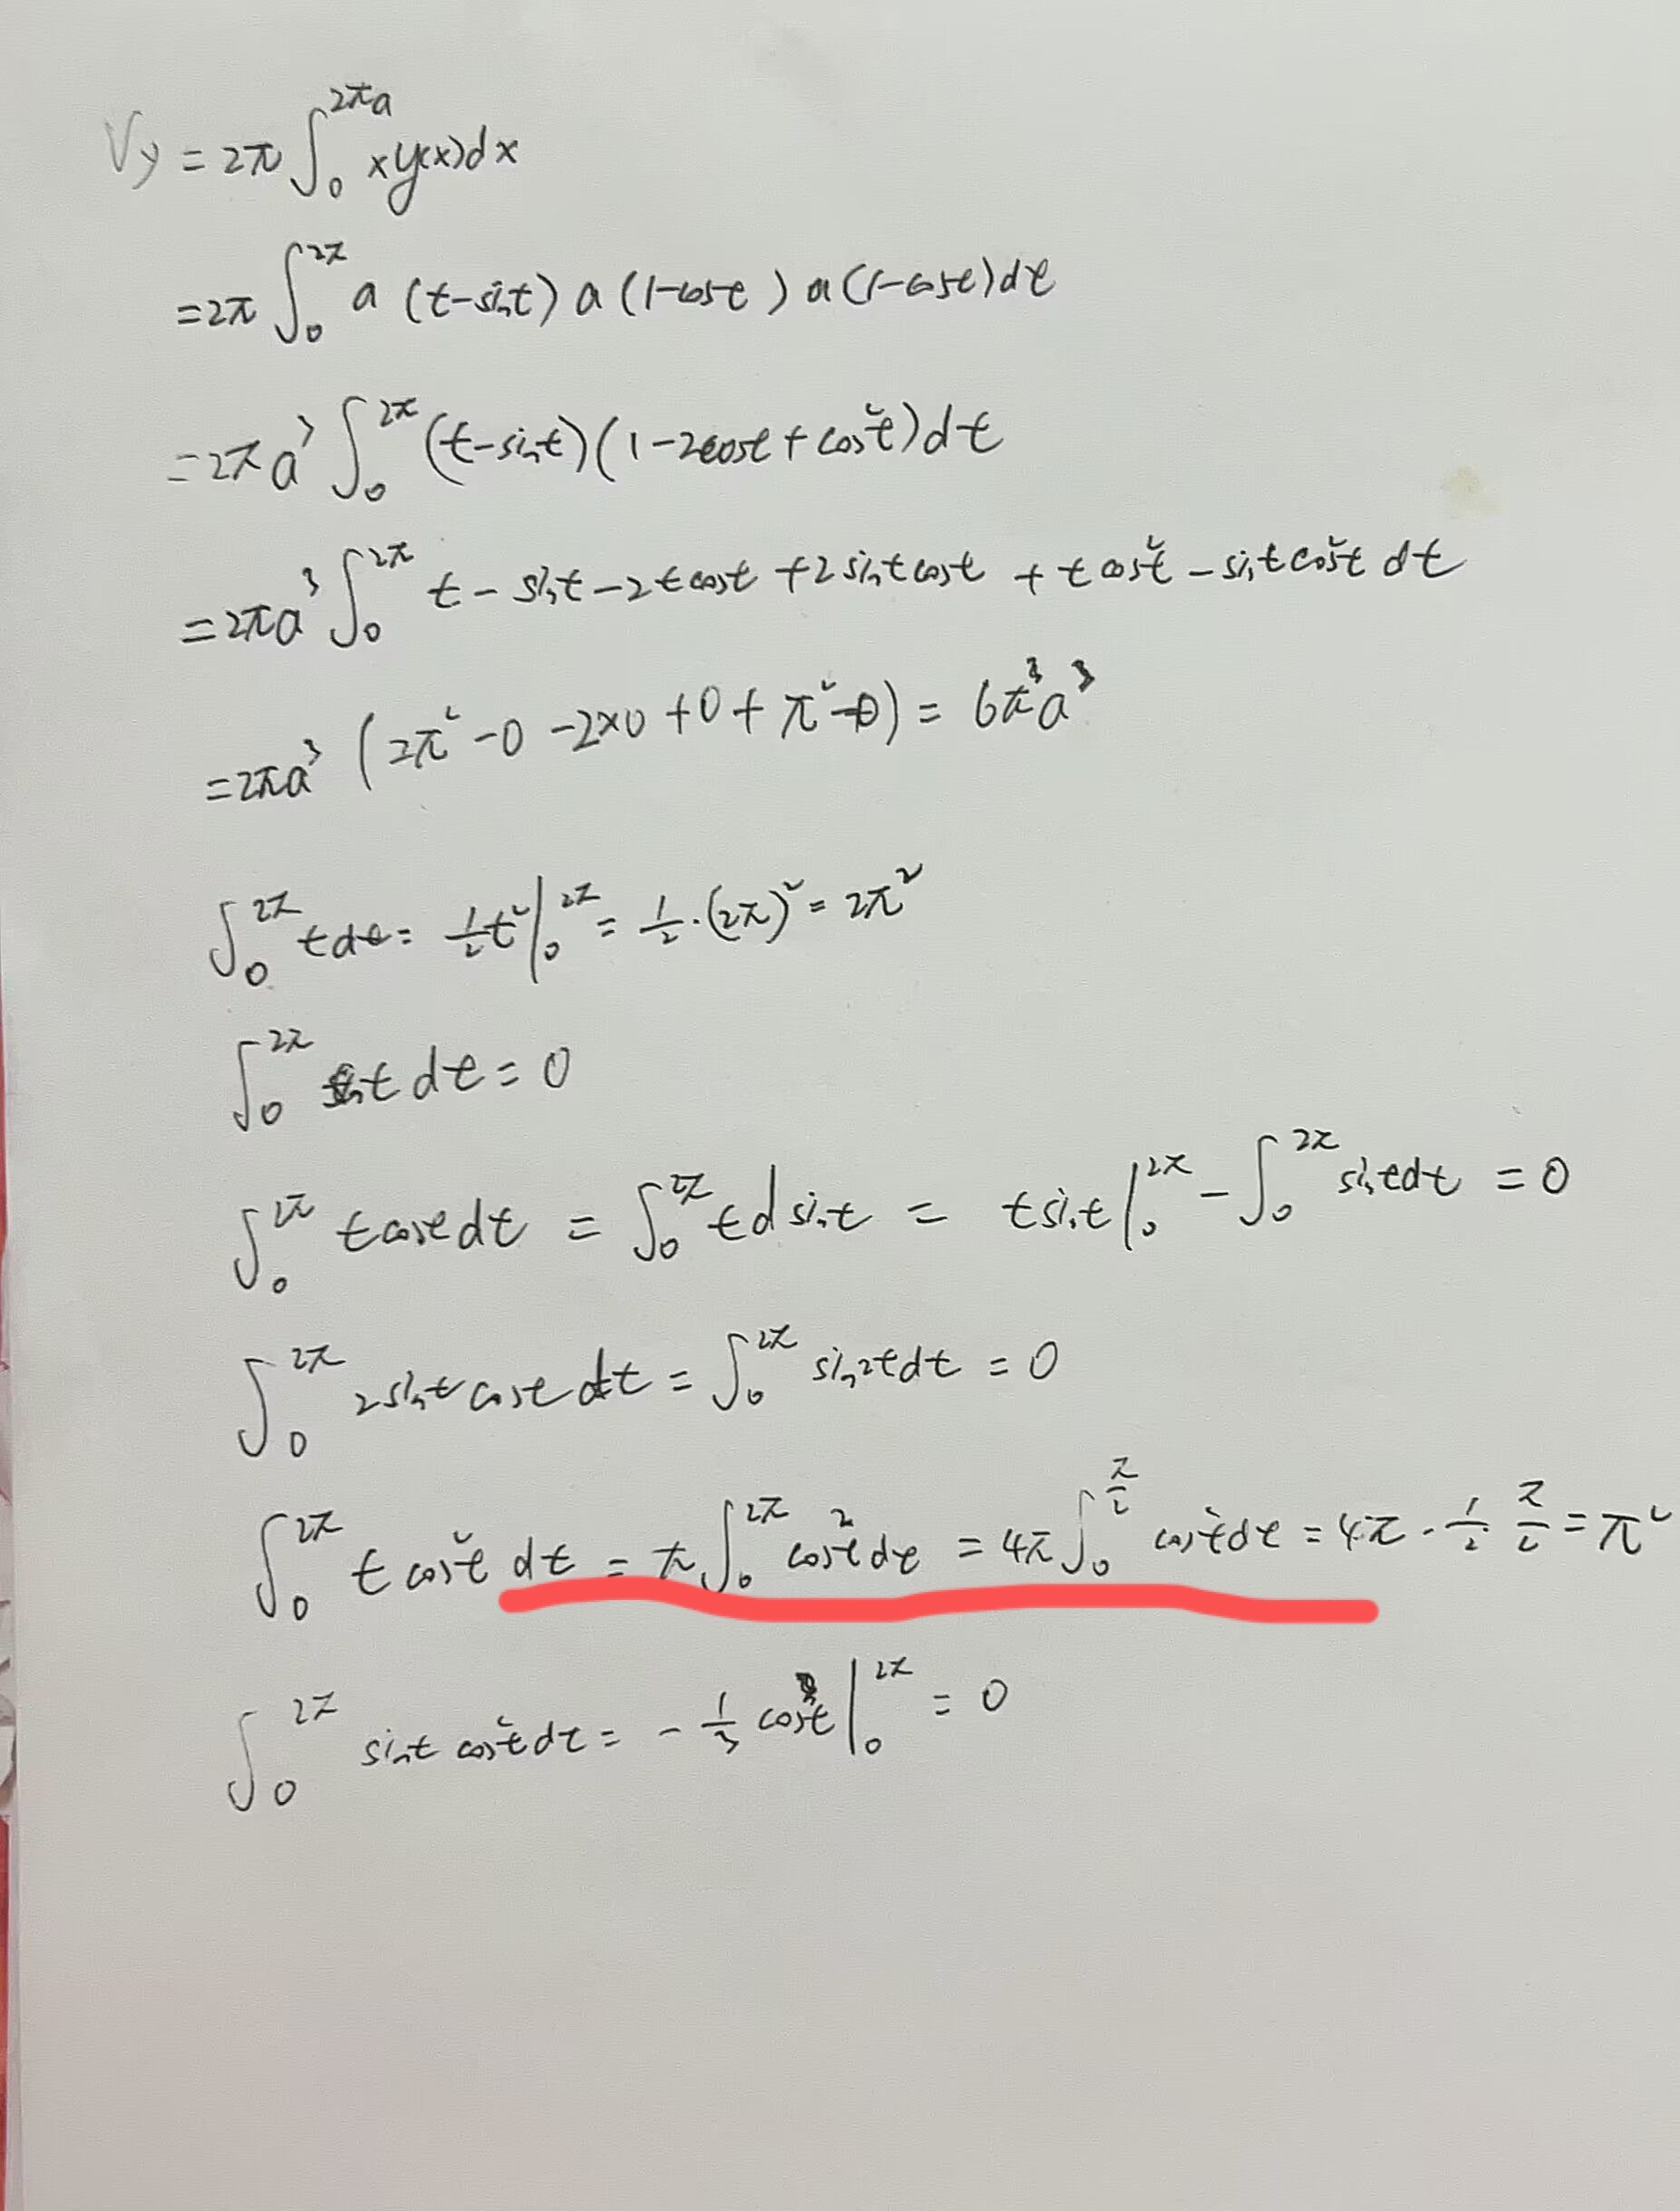 Vy = 2π∫₀^{2πa} x y(x) dx
= 2π∫₀^{2π} a (t-sint) a (1-cost) a (1-cost) dt
= 2πa³∫₀^{2π} (t-sint)(1-2cost+cos²t) dt
= 2πa³∫₀^{2π} t - sint - 2tcost + 2sintcost + tcos²t - sintcos²t dt
= 2πa³ (2π² - 0 - 2×0 + 0 + π² - 0) = 6π³a³
∫₀^{2π} t dt = ½t²|₀^{2π} = ½·(2π)² = 2π²
∫₀^{2π} sint dt = 0
∫₀^{2π} tcost dt = ∫₀^{2π} t d sint = tsint|₀^{2π} - ∫₀^{2π} sint dt = 0
∫₀^{2π} 2sint cost dt = ∫₀^{2π} sin2t dt = 0
∫₀^{2π} t cos²t dt = π∫₀^{2π} cos²t dt = 4π∫₀^{π/2} cos²t dt = 4π·½ π/2 = π²
∫₀^{2π} sint cos²t dt = -⅓ cos³t|₀^{2π} = 0